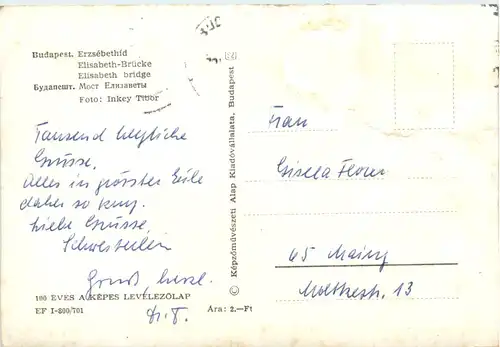 Budapest. Erzsébethíd
Elisabeth-Brücke
Elisabeth bridge
Будапешт. Мост Елизаветы
Foto: Inkey Tibor
Tausend herzliche
Grüsse.
Alles in grösster Eile
daher so kurz.
Liebe Grüsse,
Schwesterlein
Gruß herzl.
100 ÉVES A KÉPES LEVELEZŐLAP
EF I-800/701
Ára: 2.—Ft
© Képzőművészeti Alap Kiadóvállalata, Budapest
Frau
Gisela
65 Mainz
Moltkestr. 13